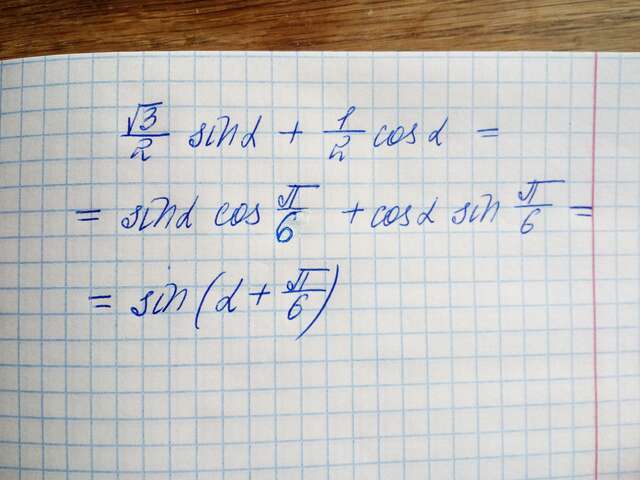 √3/2 sinα + 1/2 cosα =
= sinα cos π/6 + cosα sin π/6 =
= sin(α + π/6)